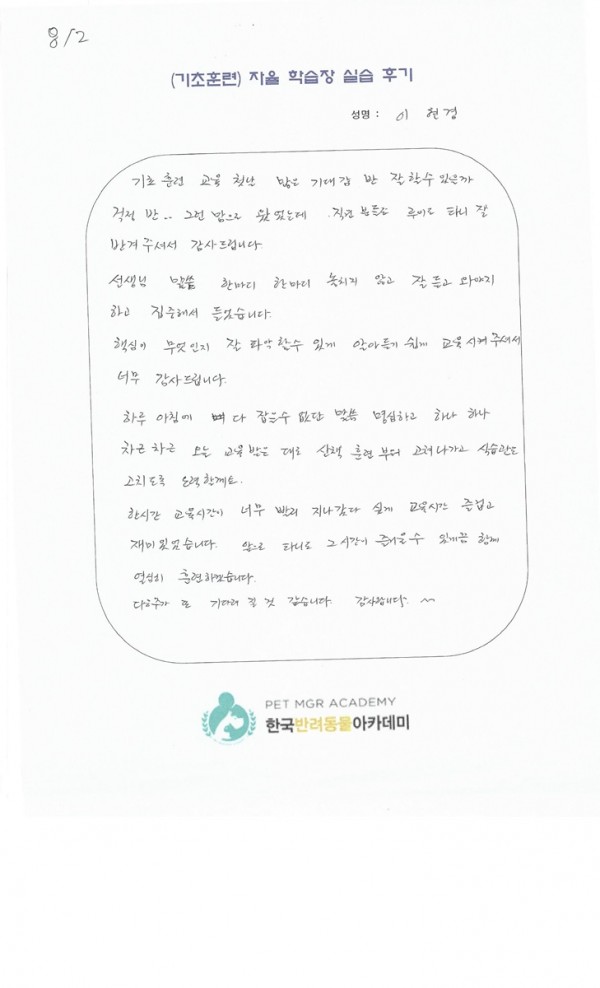 8/2
(기초훈련) 자율 학습장 실습 후기
성명 : 이 현경
기초 훈련 교육 첫날 많은 기대감 반 잘 할수 있을까
걱정 반.. 그런 맘으로 왔었는데 직원 분들도 루비도 타니 잘
반겨 주셔서 감사드립니다.
선생님 말씀 한마디 한마디 놓치지 않고 잘 듣고 와야지
하고 집중해서 들었습니다.
핵심이 무엇인지 잘 파악할수 있게 알아듣기 쉽게 교육시켜 주셔서
너무 감사드립니다.
하루 아침에 뼈 다 잡을수 없단 말씀 명심하고 하나 하나
차근 차근 오늘 교육 받은 대로 산책 훈련 부터 고쳐나가고 식습관도
고치도록 노력할께요.
한시간 교육시간이 너무 빨리 지나갔다 싶게 교육시간 즐겁고
재미있었습니다. 앞으로 타니도 그 시간이 즐거울 수 있게끔 함께
열심히 훈련하겠습니다.
다음주가 또 기다려 질 것 같습니다. 감사합니다. ~
PET MGR ACADEMY
한국반려동물아카데미